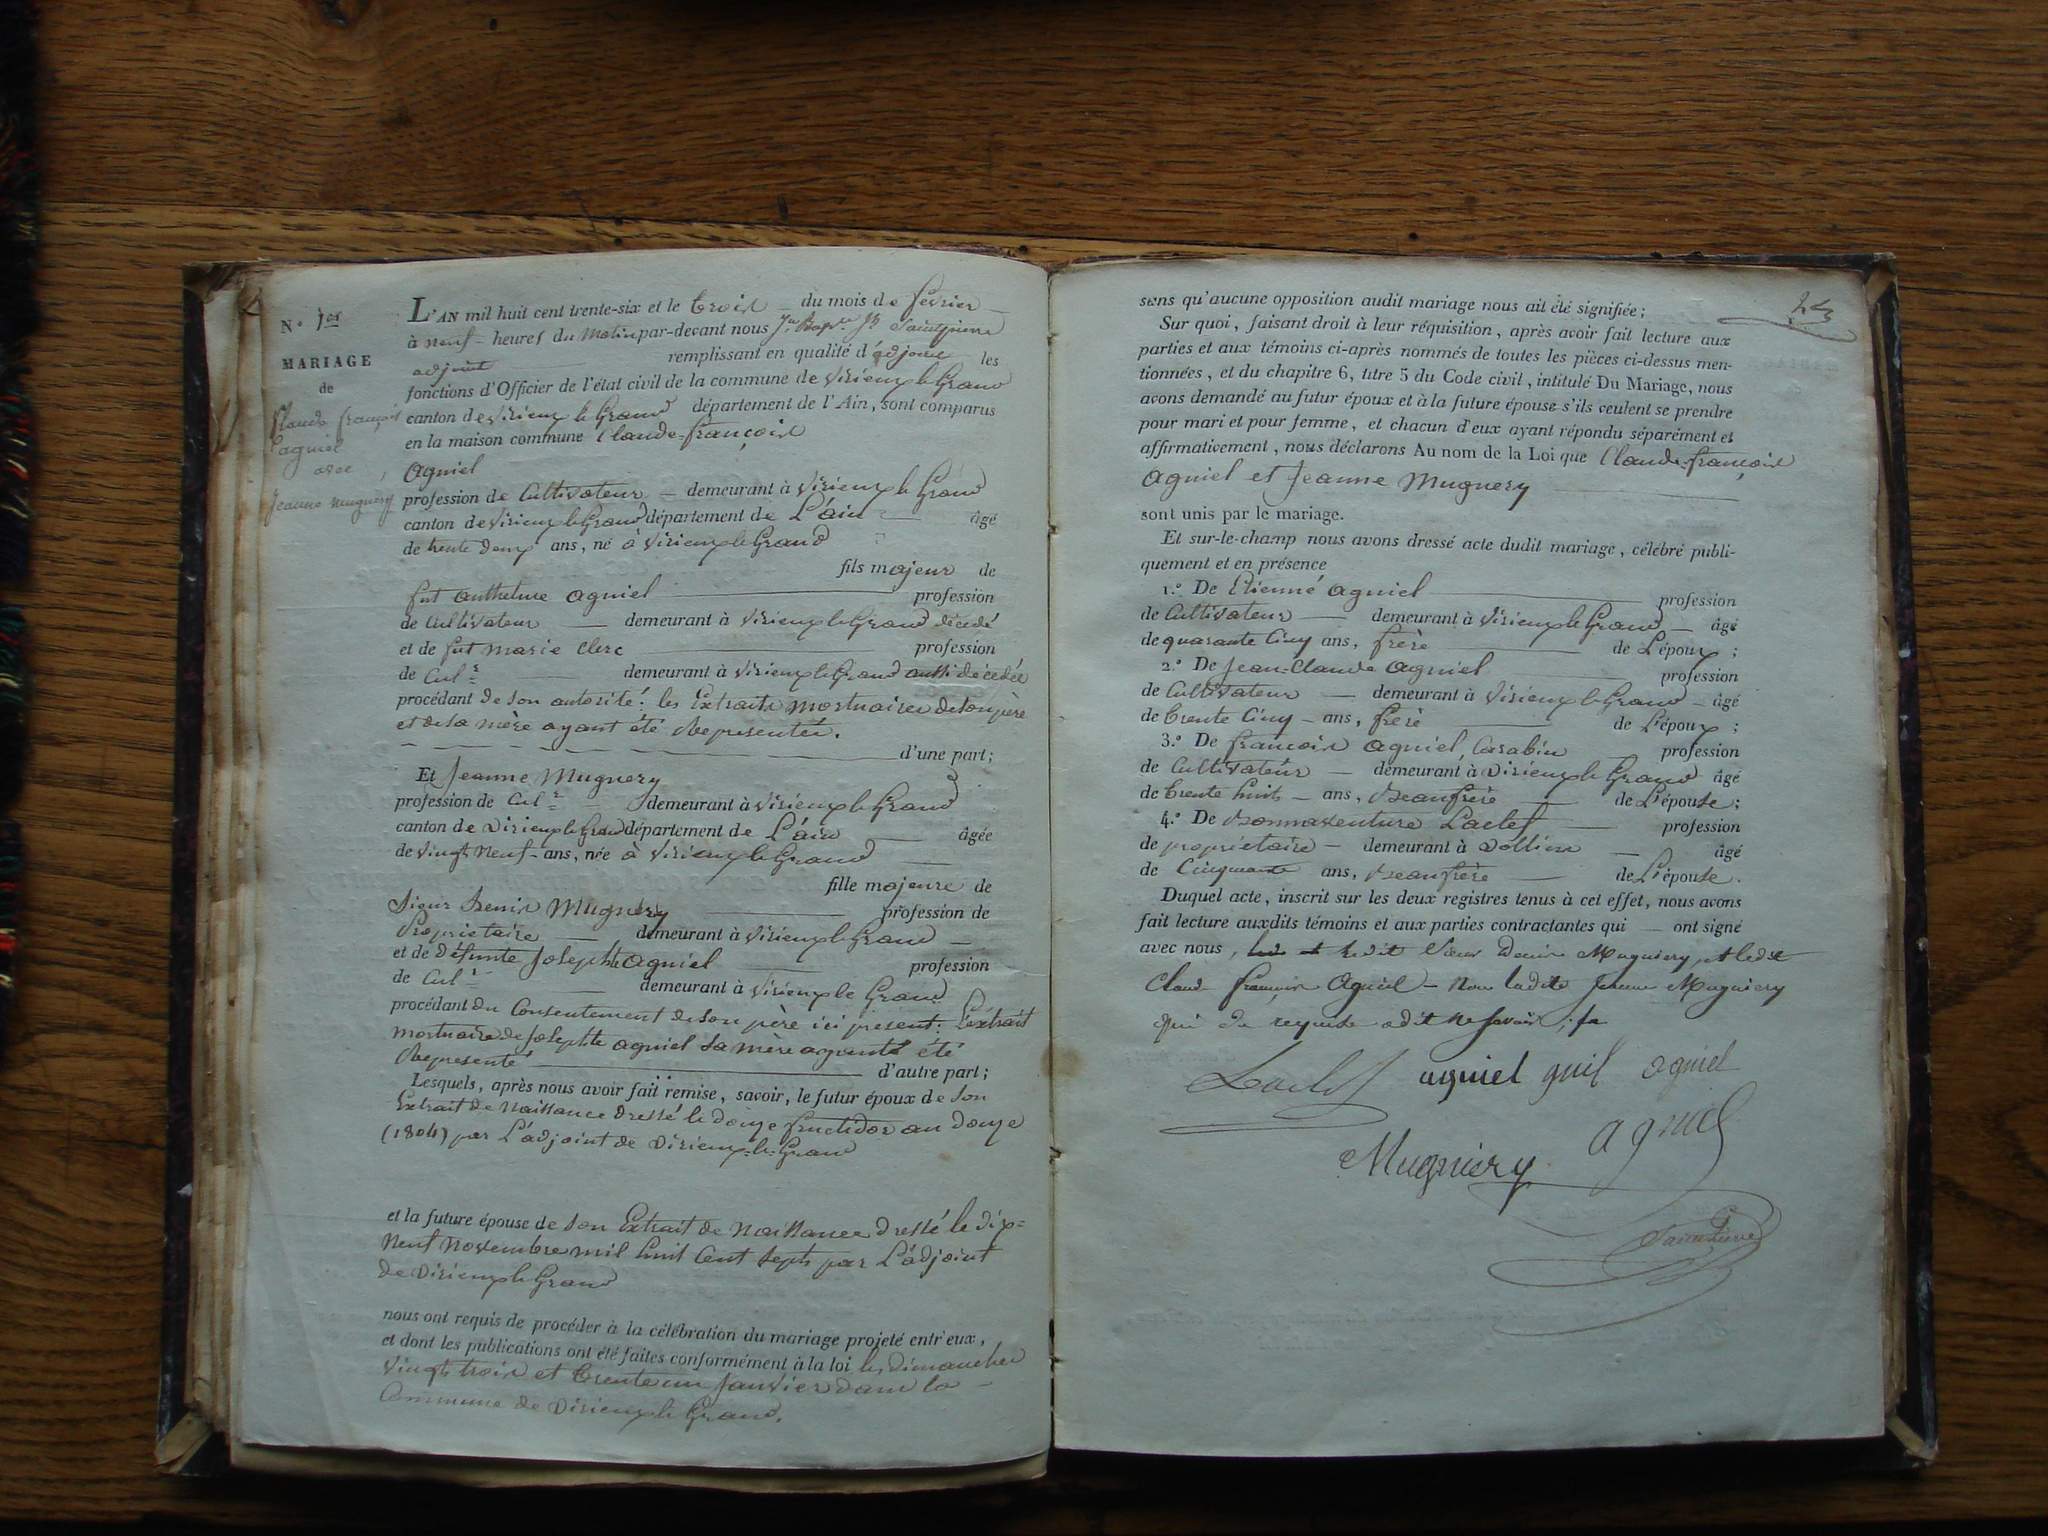 N.° 1er
MARIAGE
de
Claude françois
agniel
avec
Jeanne mugnery
L'AN mil huit cent trente-six et le trois du mois de février
à neuf heures du matin par-devant nous Jn Bapte Saintpierre
adjoint remplissant en qualité d'adjoint les
fonctions d'Officier de l'état civil de la commune de Virieux le Grand
canton de Virieux le Grand département de l'Ain, sont comparus
en la maison commune Claude-françois
agniel
profession de Cultivateur — demeurant à Virieux le Grand
canton de Virieux le Grand département de L'ain âgé
de trente deux ans, né à Virieux le Grand
fils majeur de
fut anthelme agniel profession
de Cultivateur — demeurant à Virieux le Grand décédé
et de fut marie clerc profession
de Culr demeurant à Virieux le Grand aussi décédée
procédant de son autorité: les Extraits mortuaires de son père
et de sa mère ayant été Representés.
d'une part;
Et Jeanne Mugnery
profession de Culr demeurant à Virieux le Grand
canton de Virieux le Grand département de L'ain âgée
de vingt neuf ans, née à Virieux le Grand
fille majeure de
Sieur Denis Mugnery profession de
Propriétaire — demeurant à Virieux le Grand —
et de défunte Josephte agniel profession
de Culr demeurant à Virieux le Grand
procédant du Consentement de son père ici présent: L'extrait
mortuaire de Josephte agniel sa mère ayant été
Representé d'autre part;
Lesquels, après nous avoir fait remise, savoir, le futur époux de son
Extrait de Naissance dressé le douze fructidor an douze
(1804) par L'adjoint de Virieux-le-Grand
et la future épouse de son Extrait de Naissance dressé le dix=
neuf novembre mil huit Cent sept par L'adjoint
de Virieux le Grand
nous ont requis de procéder à la célébration du mariage projeté entr'eux,
et dont les publications ont été faites conformément à la loi les dimanches
vingt trois et trente un janvier dans la
Commune de Virieux le Grand.
sans qu'aucune opposition audit mariage nous ait été signifiée;
Sur quoi, faisant droit à leur réquisition, après avoir fait lecture aux
parties et aux témoins ci-après nommés de toutes les pièces ci-dessus men-
tionnées, et du chapitre 6, titre 5 du Code civil, intitulé Du Mariage, nous
avons demandé au futur époux et à la future épouse s'ils veulent se prendre
pour mari et pour femme, et chacun d'eux ayant répondu séparément et
affirmativement, nous déclarons Au nom de la Loi que Claude-françois
agniel et Jeanne Mugnery
sont unis par le mariage.
Et sur-le-champ nous avons dressé acte dudit mariage, célébré publi-
quement et en présence
1.° De Etienne agniel profession
de Cultivateur — demeurant à Virieux le Grand — âgé
de quarante Cinq ans, frère de L'époux;
2.° De Jean-Claude agniel profession
de Cultivateur — demeurant à Virieux le Grand — âgé
de trente Cinq — ans, frère de L'époux;
3.° De françois agniel, Carabin profession
de Cultivateur — demeurant à Virieux le Grand âgé
de trente huit — ans, Beaufrère de L'épouse;
4.° De Bonnaventure Laclef profession
de propriétaire — demeurant à Vollien âgé
de Cinquante ans, Beaufrère de L'épouse.
Duquel acte, inscrit sur les deux registres tenus à cet effet, nous avons
fait lecture auxdits témoins et aux parties contractantes qui — ont signé
avec nous, ledit Sieur Denis Mugniery, et ledit
Claude françois Agniel — Non ladite Jeanne Mugniery
qui de requise a dit ne savoir,
agniel agniel
agniel
Mugniery
Saintpierre